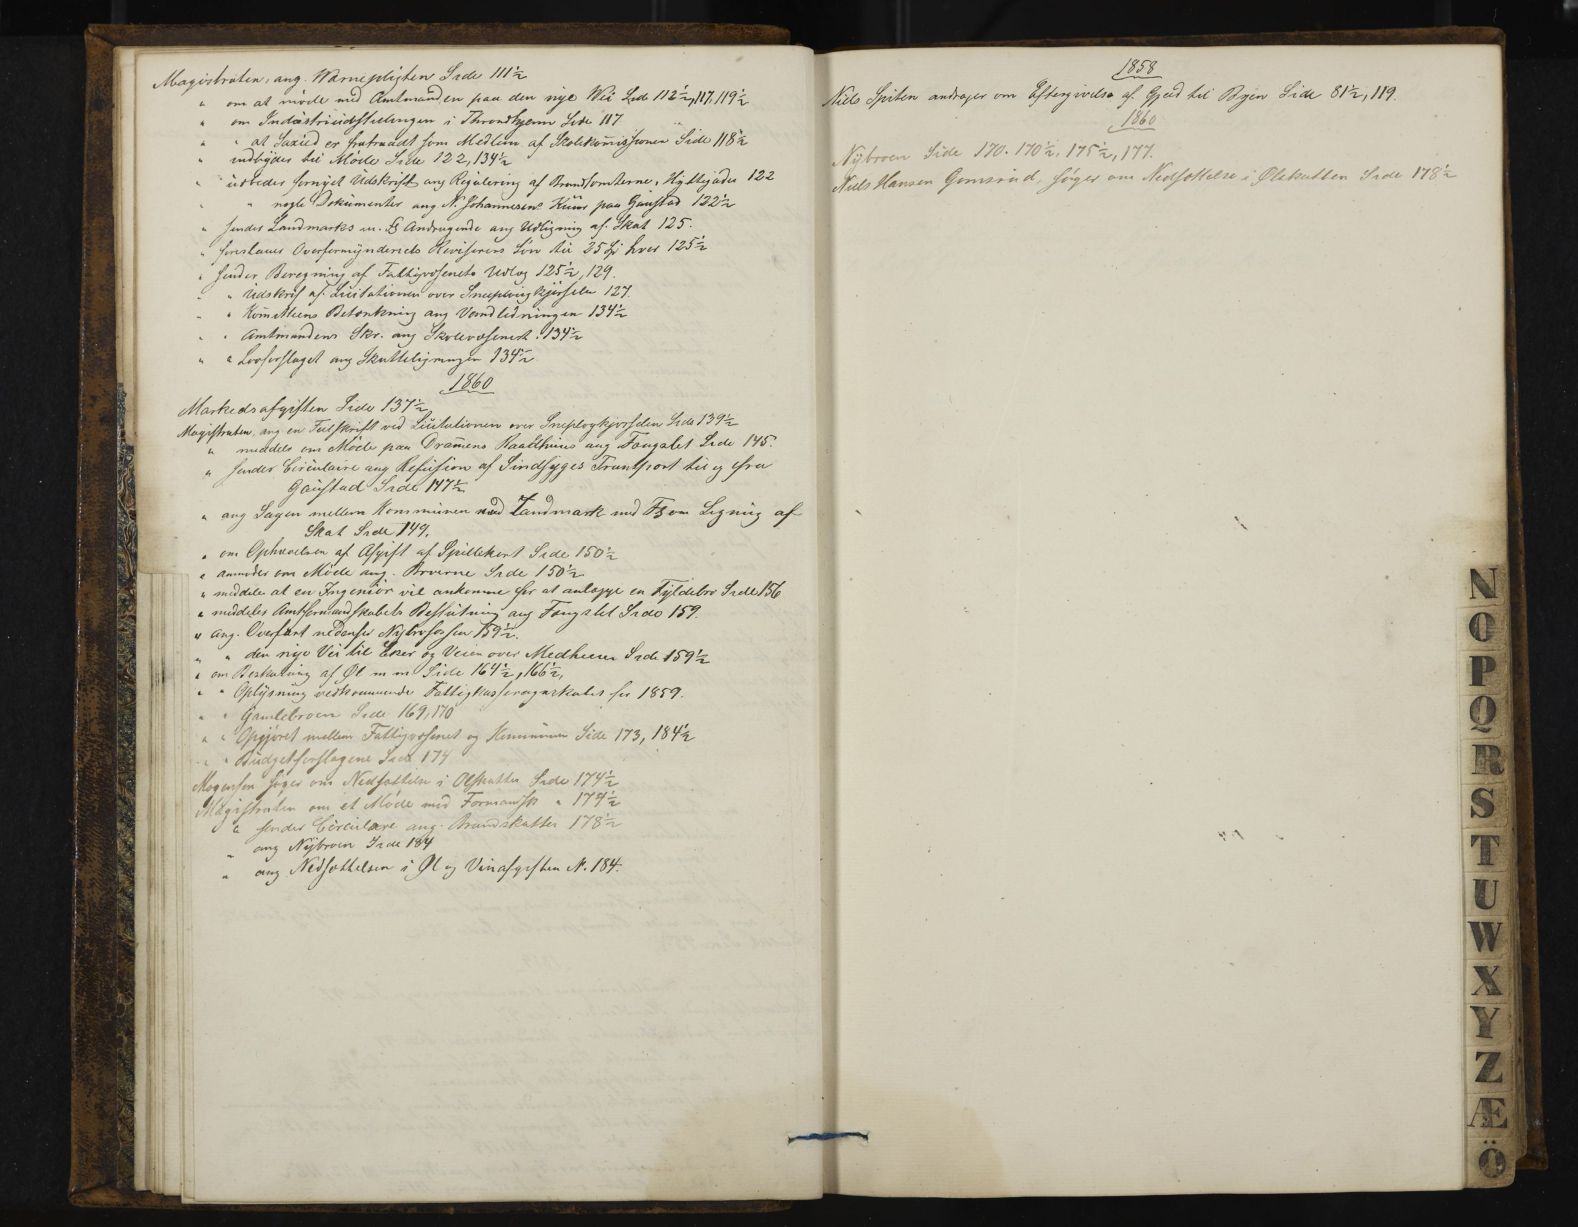 Magistraten, ang. Warnepligten Side 111½
" om at møde med Amtmanden paa den nye Vei Side 112½, 117, 119½
" om Industriudstillingen i Throndhjem Side 117
" " at Saxlid er fratraadt som Medlem af Skolekommissionen Side 118½
" indbydes til Møde Side 122, 134½
" udbedes fornyet Udskrift ang Regulering af Brandtomterne, Hyttegaden 122
" " nogle Dokumenter ang N. Johannesens Kuur paa Gaustad 122½
" sender Landmarks m. Fl Andragende ang Udligning af Skat 125.
" foreslaaer Overformynderiets Revisorers Løn til 25 Spd hver 125½
" sender Beregning af Fattigvæsenets Udlæg 125½, 129.
" " Udskrift af Licitationen over Sneplougkjørselen 127.
" " Komiteens Betænkning ang Vandledningen 134½
" " Amtmandens Skr. ang Skolevæsenet 134½
" " Lovforslaget ang Skatteligningen 134½
1860
Markedsafgiften Side 137½
Magistraten, ang en Feilskrift ved Licitationen over Sneplogkjørselen Side 139½
" meddeler om Møde paa Dramens Raadhuus ang Fængslet Side 145.
" sender Circulaire ang Refusion af Sindsyges Transport til og fra
Gaustad Side 147½
" ang Sagen mellem Kommunen med Landmark med Fl om Ligning af
Skat Side 149.
" om Ophævelsen af Afgift af Spillekort Side 150½
" anmoder om Møde ang. Broerne Side 150½
" meddeler at en Ingeniør vil ankomme for at anlægge en Fyldebro Side 156
" meddeler Amtsformandskabets Beslutning ang Fængslet Side 159.
" ang. Overfart nedenfor Nybrofossen 159½.
" " den nye Vei til Eker og Veien over Medheien Side 159½
" om Beskatning af Øl m m Side 164½, 166½,
" " Oplysning vedkommende Fattigkasseregnskabet for 1859.
" " Gamlebroen Side 169, 170
" " Opgjøret mellem Fattigvæsenet og Kommunen Side 173, 184½
" " Budgetforslagene Side 174
Mogensen søger om Nedsættelse i Ølskatten Side 174½
Magistraten om et Møde med Formandsk " 174½
" sender Circulære ang. Brandskatten 178½
" ang Nybroen Side 184
" ang Nedsættelsen i Øl og Vinafgiften N. 184.
1858
Niels Spiten andrager om Eftergivelse af Gjæld til Byen Side 81½, 119.
1860
Nybroen Side 170. 170½, 175½, 177.
Niels Hansen Gomsrud, søger om Nedsættelse i Ølskatten Side 178½
N
O
P
Q
R
S
T
U
W
X
Y
Z
Æ
Ö